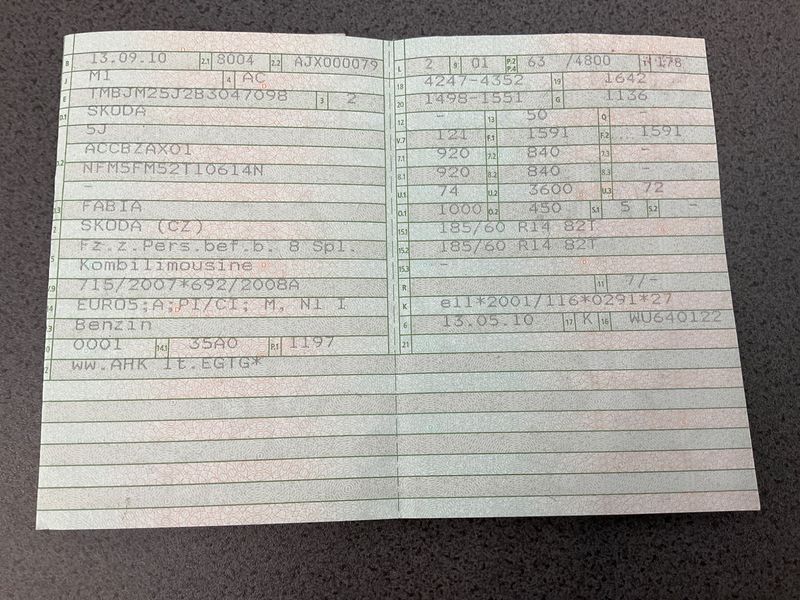 B 13.09.10 2.1 8004 2.2 AJX000079
J M1 4 AC
E TMBJM25J2B3047098 3 2
D.1 SKODA
5J
D.2 ACCBZAX01
NFM5FM52T10614N
-
D.3 FABIA
2 SKODA (CZ)
Fz.z.Pers.bef.b. 8 Spl.
5 Kombilimousine
V.9 715/2007*692/2008A
14 EURO5;A;PI/CI; M, N1 I
P.3 Benzin
10 0001 14.1 35A0 P.1 1197
22 ww.AHK lt.EGTG*
L 2 9 01 P.2 P.4 63 /4800 T 178
18 4247-4352 19 1642
20 1498-1551 G 1136
12 - 13 50 Q -
V.7 121 F.1 1591 F.2 1591
7.1 920 7.2 840 7.3 -
8.1 920 8.2 840 8.3 -
U.1 74 U.2 3600 U.3 72
O.1 1000 O.2 450 S.1 5 S.2 -
15.1 185/60 R14 82T
15.2 185/60 R14 82T
15.3 -
R 11 7/-
K e11*2001/116*0291*27
6 13.05.10 17 K 16 WU640122
21